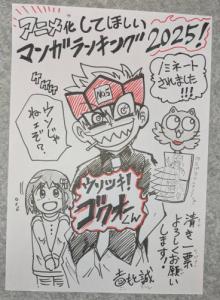 アニメ化してほしい
マンガランキング2025!
ノミネート
されました!!!
ウソじゃ
ねェぞ?
No.5
ウソツキ!
ゴクオーくん
清き一票
よろしくお願い
します!
吉もと誠